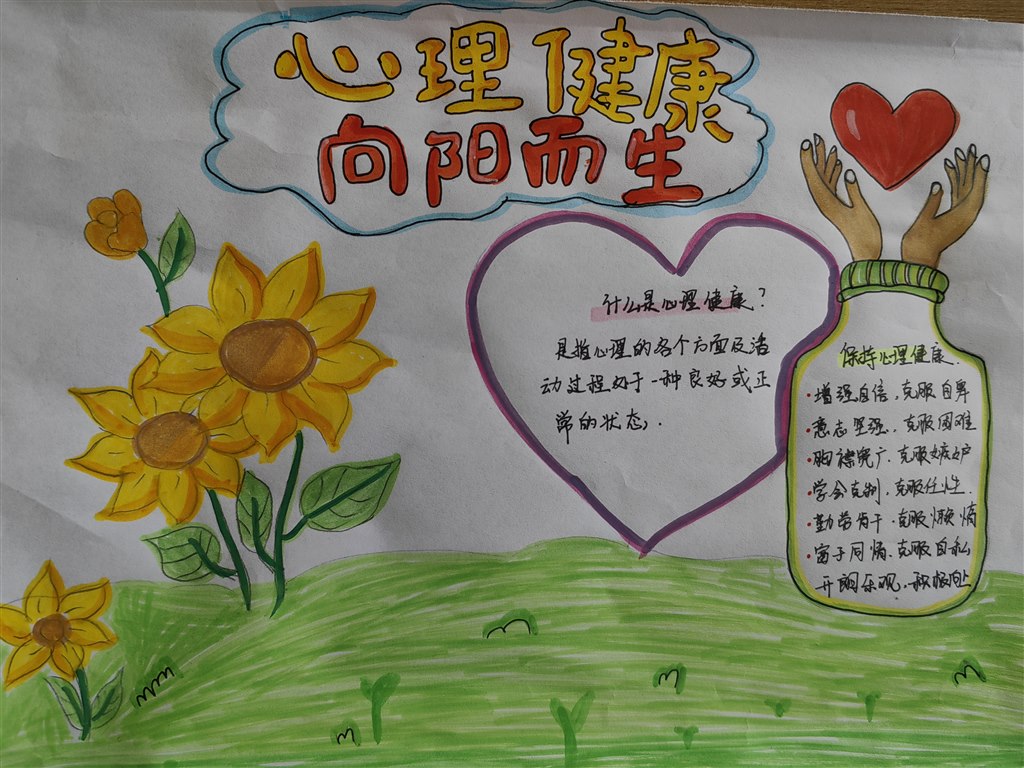 心理健康
向阳而生
什么是心理健康？
是指心理的各个方面及活
动过程处于一种良好或正
常的状态，.
保持心理健康.
·增强自信，克服自卑
·意志坚强，克服困难
·胸襟宽广.克服嫉妒
·学会克制，克服任性.
·勤劳肯干.克服懒惰
·富于同情.克服自私
开朗乐观，积极向上